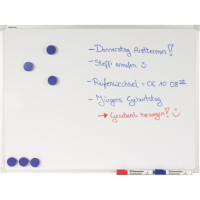 - Donnerstag Arzttermin!
- Steffi anrufen ☺
- Reifenwechsel = OE 10 08 00
- Jürgens Geburtstag
→ Geschenk besorgen! ☺